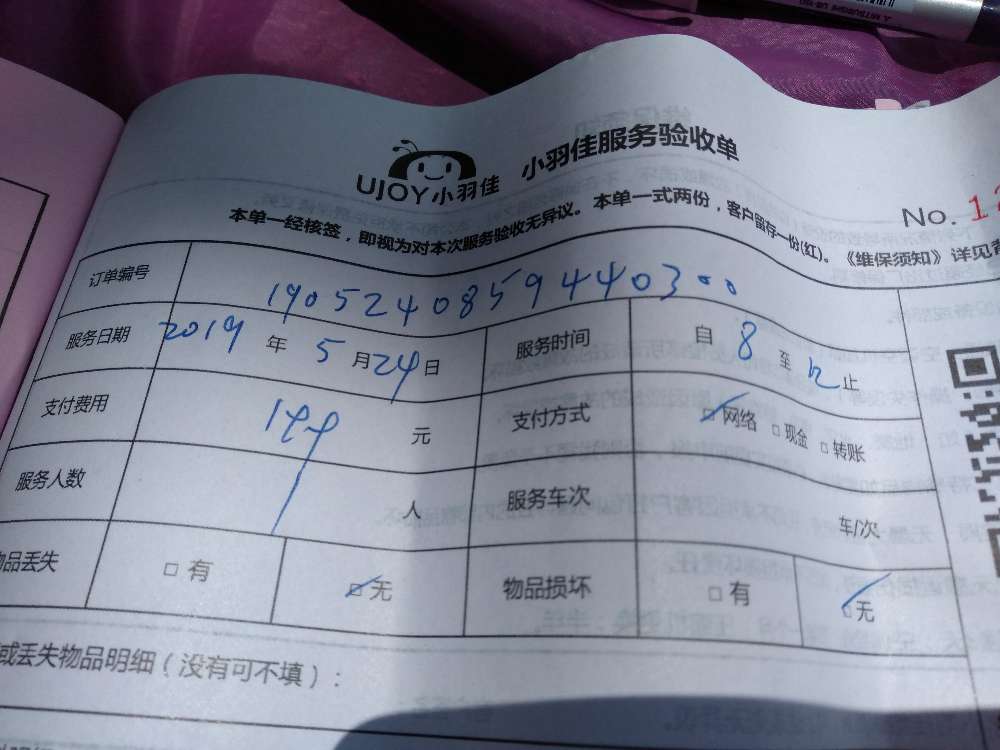 UJOY小羽佳 小羽佳服务验收单
No. 1
本单一经核签，即视为对本次服务验收无异议。本单一式两份，客户留存一份(红)。《维保须知》详见背
订单编号 1905240859440300
服务日期 2019 年 5 月 24 日 服务时间 自 8 至 12 止
支付费用 199 元 支付方式 □网络 □现金 □转账
服务人数 1 人 服务车次 车/次
物品丢失 □有 □无 物品损坏 □有 □无
或丢失物品明细（没有可不填）：